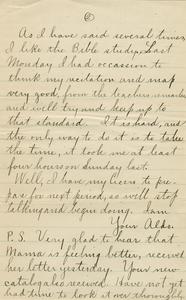 ②
As I have said several times,
I like the Bible study. Last
Monday I had occasion to
think my recitation and map
very good, from the teachers remarks
and will try and keep up to
that standard. It is hard, and
the only way to do it is to take
the time, it took me at least
four hours on Sunday last.
Well, I have my lessons to pre-
pare for next period, so will stop
talking and begin doing. I am
Your Aldo.
P.S. Very glad to hear that
Mama is feeling better, received
her letter yesterday. Your new
catalog also received. Have not yet
had time to look it over thoroughly